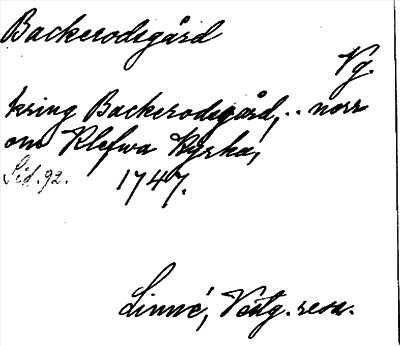 Backerodsgård
Vg.
kring Backerodsgård, .. norr
om Klefwa Kyrka,
Sid. 92. 1747.
Linné, Västg. resa.